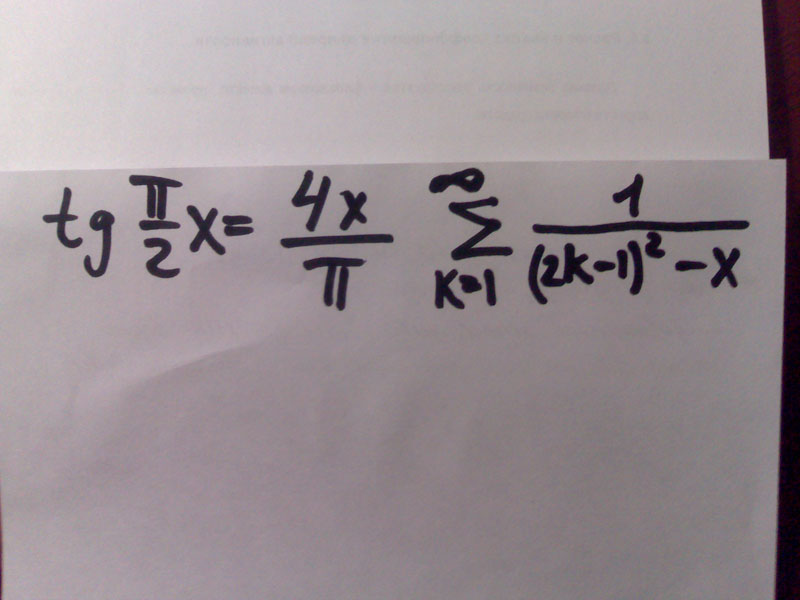 tg π/2 x = 4x/π ∞∑k=1 1/((2k-1)² - x)